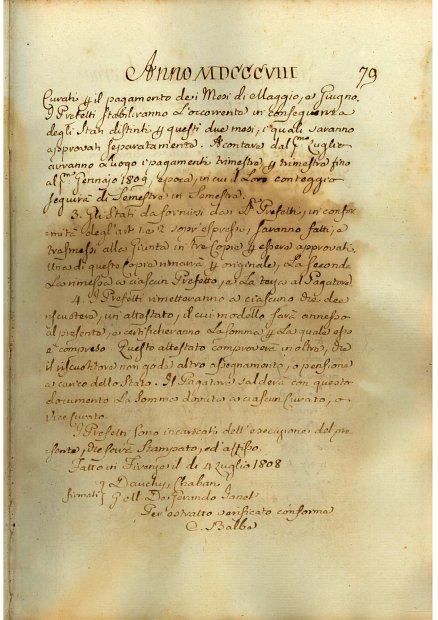 Anno MDCCCVIII 79
Curati p il pagamento dei Mesi di Maggio, e Giugno.
I Prefetti stabiliranno l'occorrente in conseguenza
degli Stati distinti p questi due mesi, i quali saranno
approvati separatamente. A contare dal p.mo Luglio
avranno Luogo i pagamenti trimestre p trimestre fino
al p.mo Gennajo 1809, epoca, in cui il Loro conteggio
seguirà di Semestre in Semestre.
3. Gli Stati da fornirsi dai Prefetti, in confor=
mità degl'art. 1 e 2 sopr'espressi, saranno fatti, e
trasmessi alla Giunta in tre Copie p essere approvati.
Una di queste copie rimarrà p originale, La Seconda
La rimessa a ciascun Prefetto, e La terza al Pagatore
4. I Prefetti rimetteranno a ciascuno che de=
riscuotere, un'attestato, il cui modello sarà annesso
al presente, e certificheranno La Somma p La quale esso
è compreso. Questo attestato comproverà in oltre, che
il riscuotitore non gode altro assegnamento, o pensione
a carico dello Stato. Il Pagatore salderà con questo
documento La Somma dovuta a ciascun Curato, o
Vice Curato.
I Prefetti sono incaricati dell'esecuzione del pre=
sente, che sarà Stampato, ed affisso.
Fatto in Firenze il di 4 Luglio 1808
Dauchy, Chaban
firmati Coll. Degerando Janet
Per estratto verificato conforme
C. Balbe